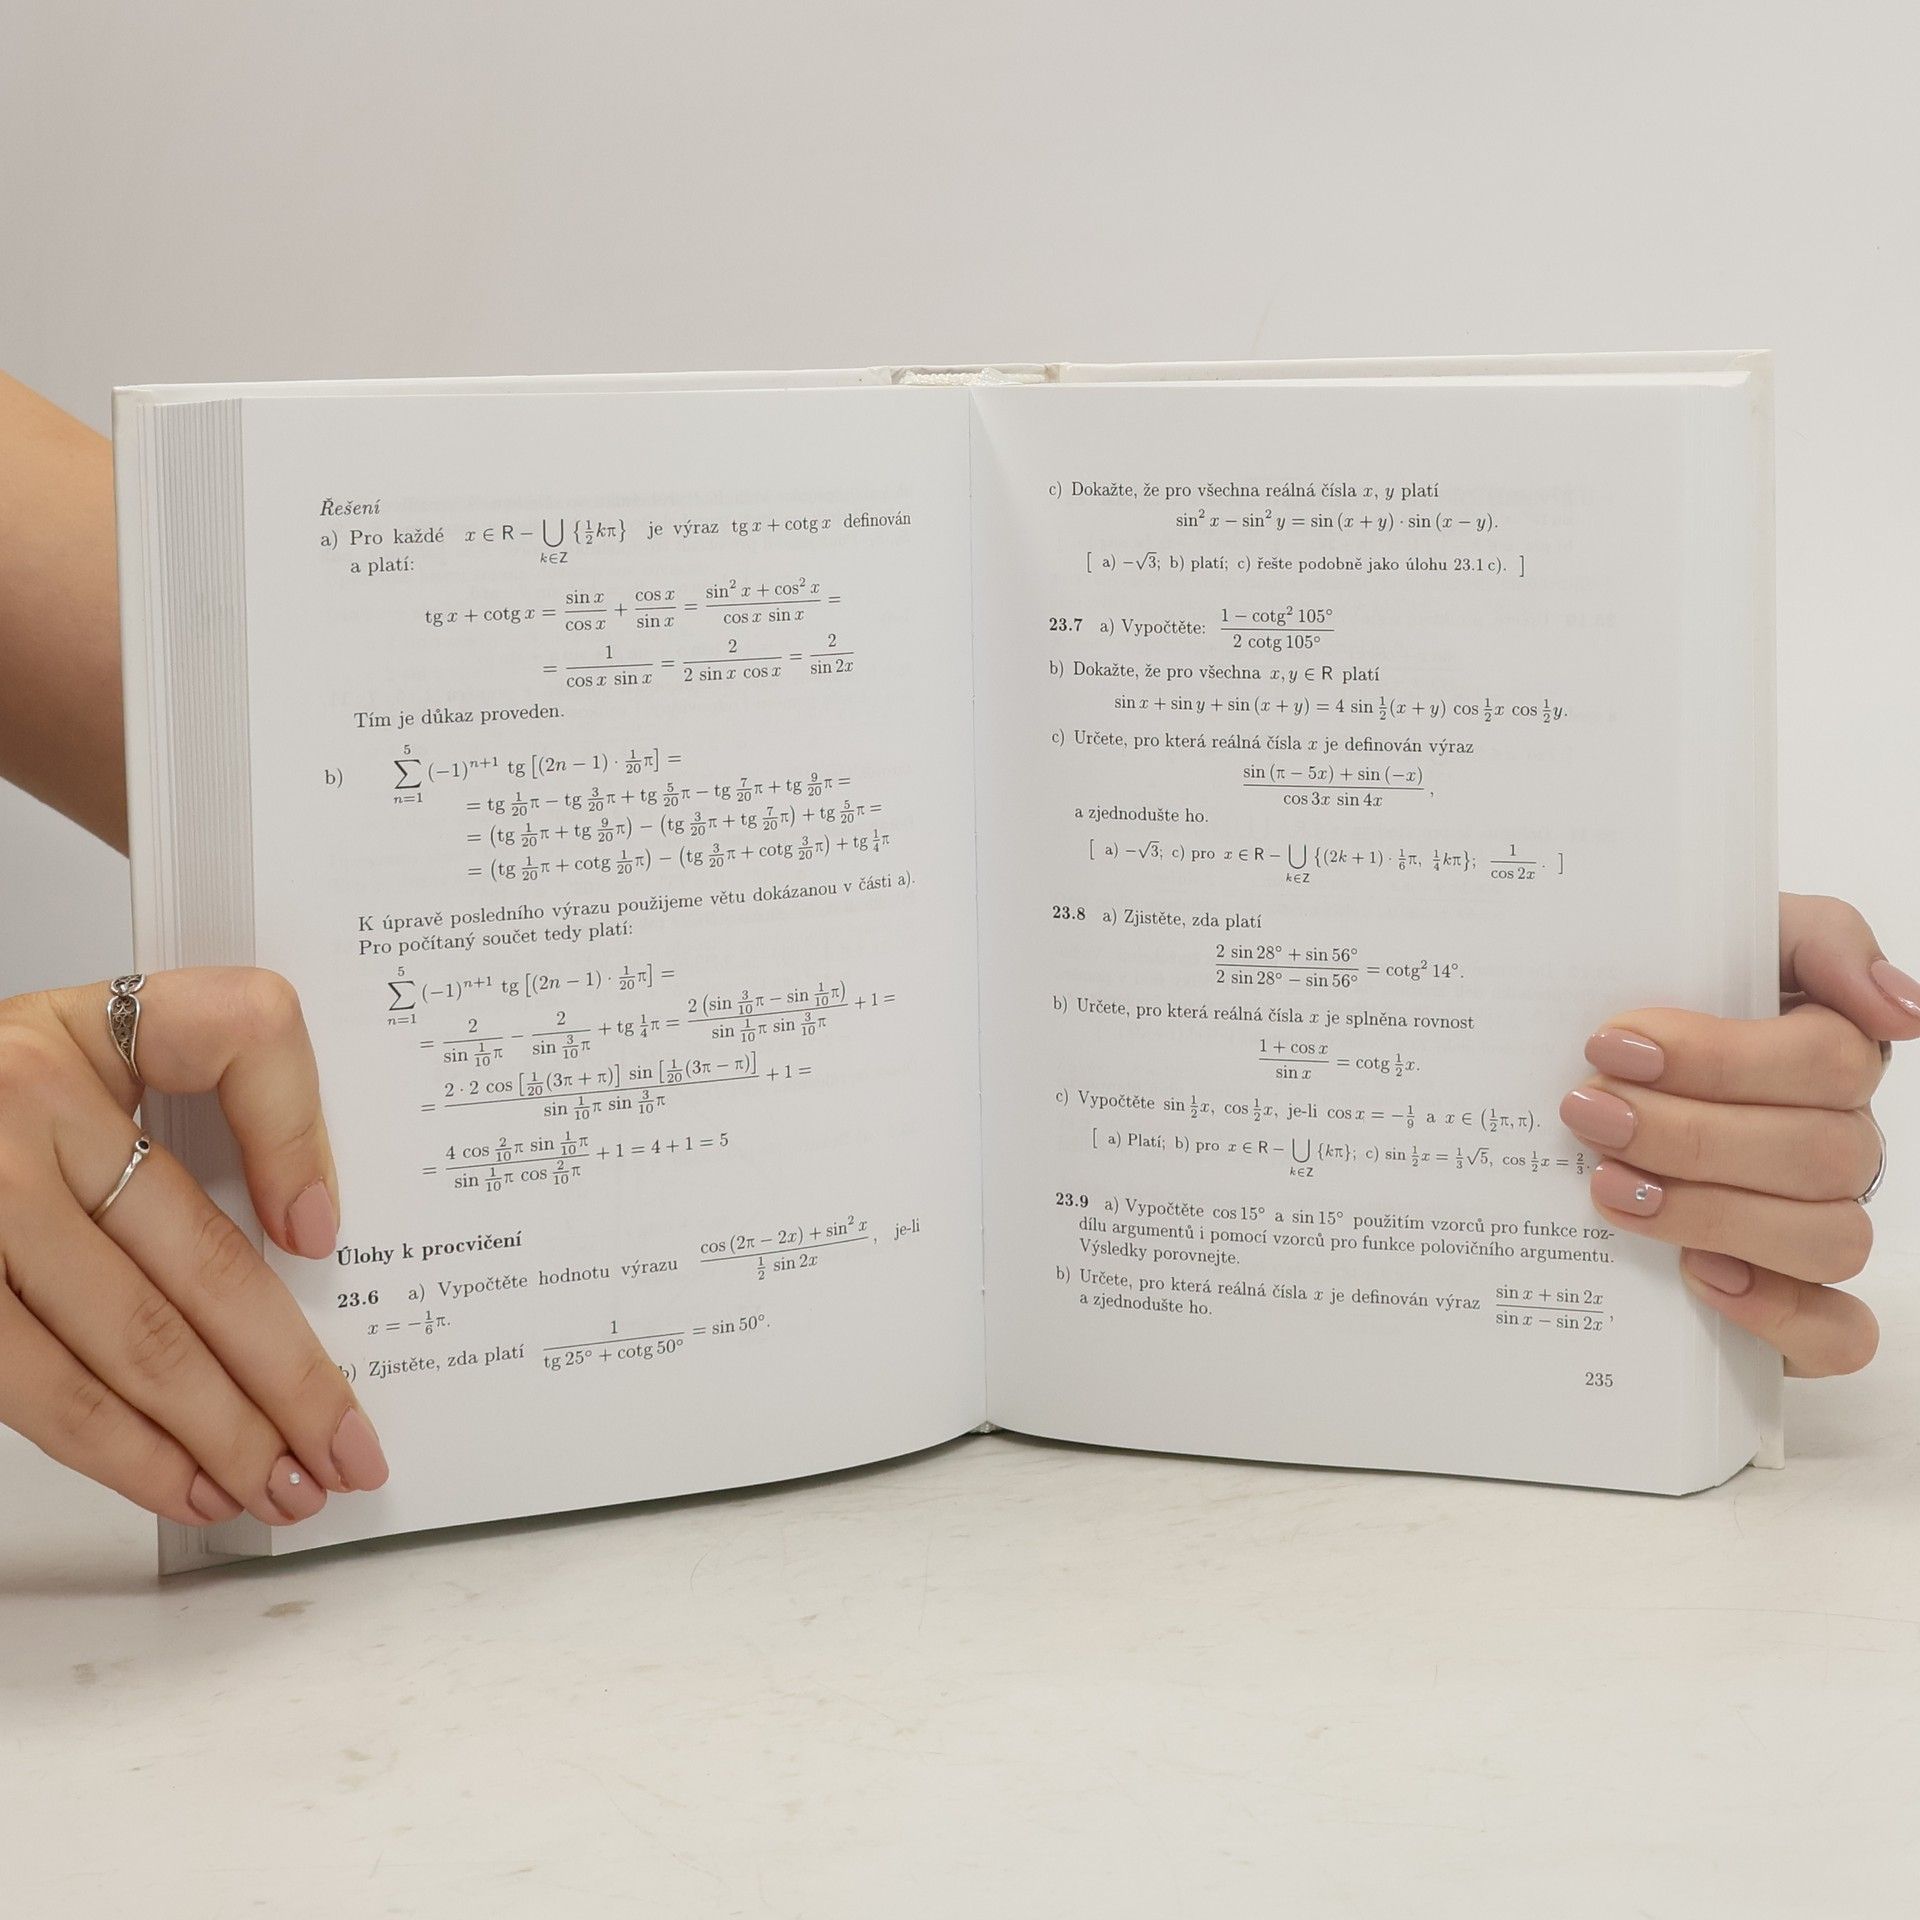 Řešení
a) Pro každé x ∈ R − ⋃ {½kπ} je výraz tg x + cotg x definován
k∈Z
a platí:
tg x + cotg x = sin x / cos x + cos x / sin x = (sin² x + cos² x) / (cos x sin x) =
= 1 / (cos x sin x) = 2 / (2 sin x cos x) = 2 / sin 2x
Tím je důkaz proveden.
b) ∑_{n=1}^{5} (−1)ⁿ⁺¹ tg [(2n − 1) · 1/20 π] =
= tg 1/20 π − tg 3/20 π + tg 5/20 π − tg 7/20 π + tg 9/20 π =
= (tg 1/20 π + tg 9/20 π) − (tg 3/20 π + tg 7/20 π) + tg 5/20 π =
= (tg 1/20 π + cotg 1/20 π) − (tg 3/20 π + cotg 3/20 π) + tg ¼π
K úpravě posledního výrazu použijeme větu dokázanou v části a).
Pro počítaný součet tedy platí:
∑_{n=1}^{5} (−1)ⁿ⁺¹ tg [(2n − 1) · 1/20 π] =
= 2 / (sin 1/10 π) − 2 / (sin 3/10 π) + tg ¼π = 2 (sin 3/10 π − sin 1/10 π) / (sin 1/10 π sin 3/10 π) + 1 =
= 2 · 2 cos [1/20 (3π + π)] sin [1/20 (3π − π)] / (sin 1/10 π sin 3/10 π) + 1 =
= 4 cos 2/10 π sin 1/10 π / (sin 1/10 π cos 2/10 π) + 1 = 4 + 1 = 5
Úlohy k procvičení
23.6 a) Vypočtěte hodnotu výrazu (cos (2π − 2x) + sin² x) / (½ sin 2x), je-li
x = −1/6 π.
b) Zjistěte, zda platí 1 / (tg 25° + cotg 50°) = sin 50°.
c) Dokažte, že pro všechna reálná čísla x, y platí
sin² x − sin² y = sin (x + y) · sin (x − y).
[ a) −√3; b) platí; c) řešte podobně jako úlohu 23.1 c). ]
23.7 a) Vypočtěte: (1 − cotg² 105°) / (2 cotg 105°)
b) Dokažte, že pro všechna x, y ∈ R platí
sin x + sin y + sin (x + y) = 4 sin ½(x + y) cos ½x cos ½y.
c) Určete, pro která reálná čísla x je definován výraz
(sin (π − 5x) + sin (−x)) / (cos 3x sin 4x),
a zjednodušte ho.
[ a) −√3; c) pro x ∈ R − ⋃ {(2k + 1) · 1/6 π, ¼kπ}; 1 / cos 2x. ]
k∈Z
23.8 a) Zjistěte, zda platí
(2 sin 28° + sin 56°) / (2 sin 28° − sin 56°) = cotg² 14°.
b) Určete, pro která reálná čísla x je splněna rovnost
(1 + cos x) / sin x = cotg ½x.
c) Vypočtěte sin ½x, cos ½x, je-li cos x = −1/9 a x ∈ (½π, π).
[ a) Platí; b) pro x ∈ R − ⋃ {kπ}; c) sin ½x = ⅓√5, cos ½x = ⅔.
k∈Z
23.9 a) Vypočtěte cos 15° a sin 15° použitím vzorců pro funkce roz-
dílu argumentů i pomocí vzorců pro funkce polovičního argumentu.
Výsledky porovnejte.
b) Určete, pro která reálná čísla x je definován výraz (sin x + sin 2x) / (sin x − sin 2x),
a zjednodušte ho.
235